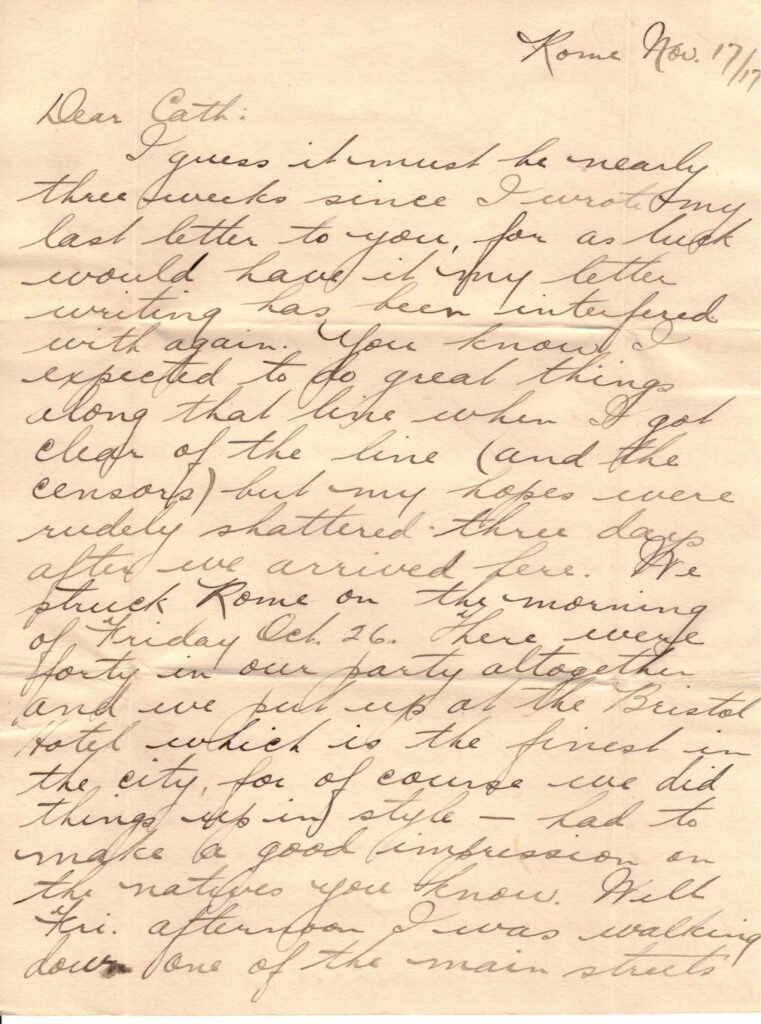 Rome Nov. 17/17
Dear Cath:
I guess it must be nearly
three weeks since I wrote my
last letter to you, for as luck
would have it my letter
writing has been interfered
with again. You know I
expected to do great things
along that line when I got
clear of the line (and the
censors) but my hopes were
rudely shattered three days
after we arrived here. We
struck Rome on the morning
of Friday Oct. 26. There were
forty in our party altogether
and we put up at the Bristol
Hotel which is the finest in
the city, for of course we did
things up in style — had to
make a good impression on
the natives you know. Well
Fri. afternoon I was walking
down one of the main streets